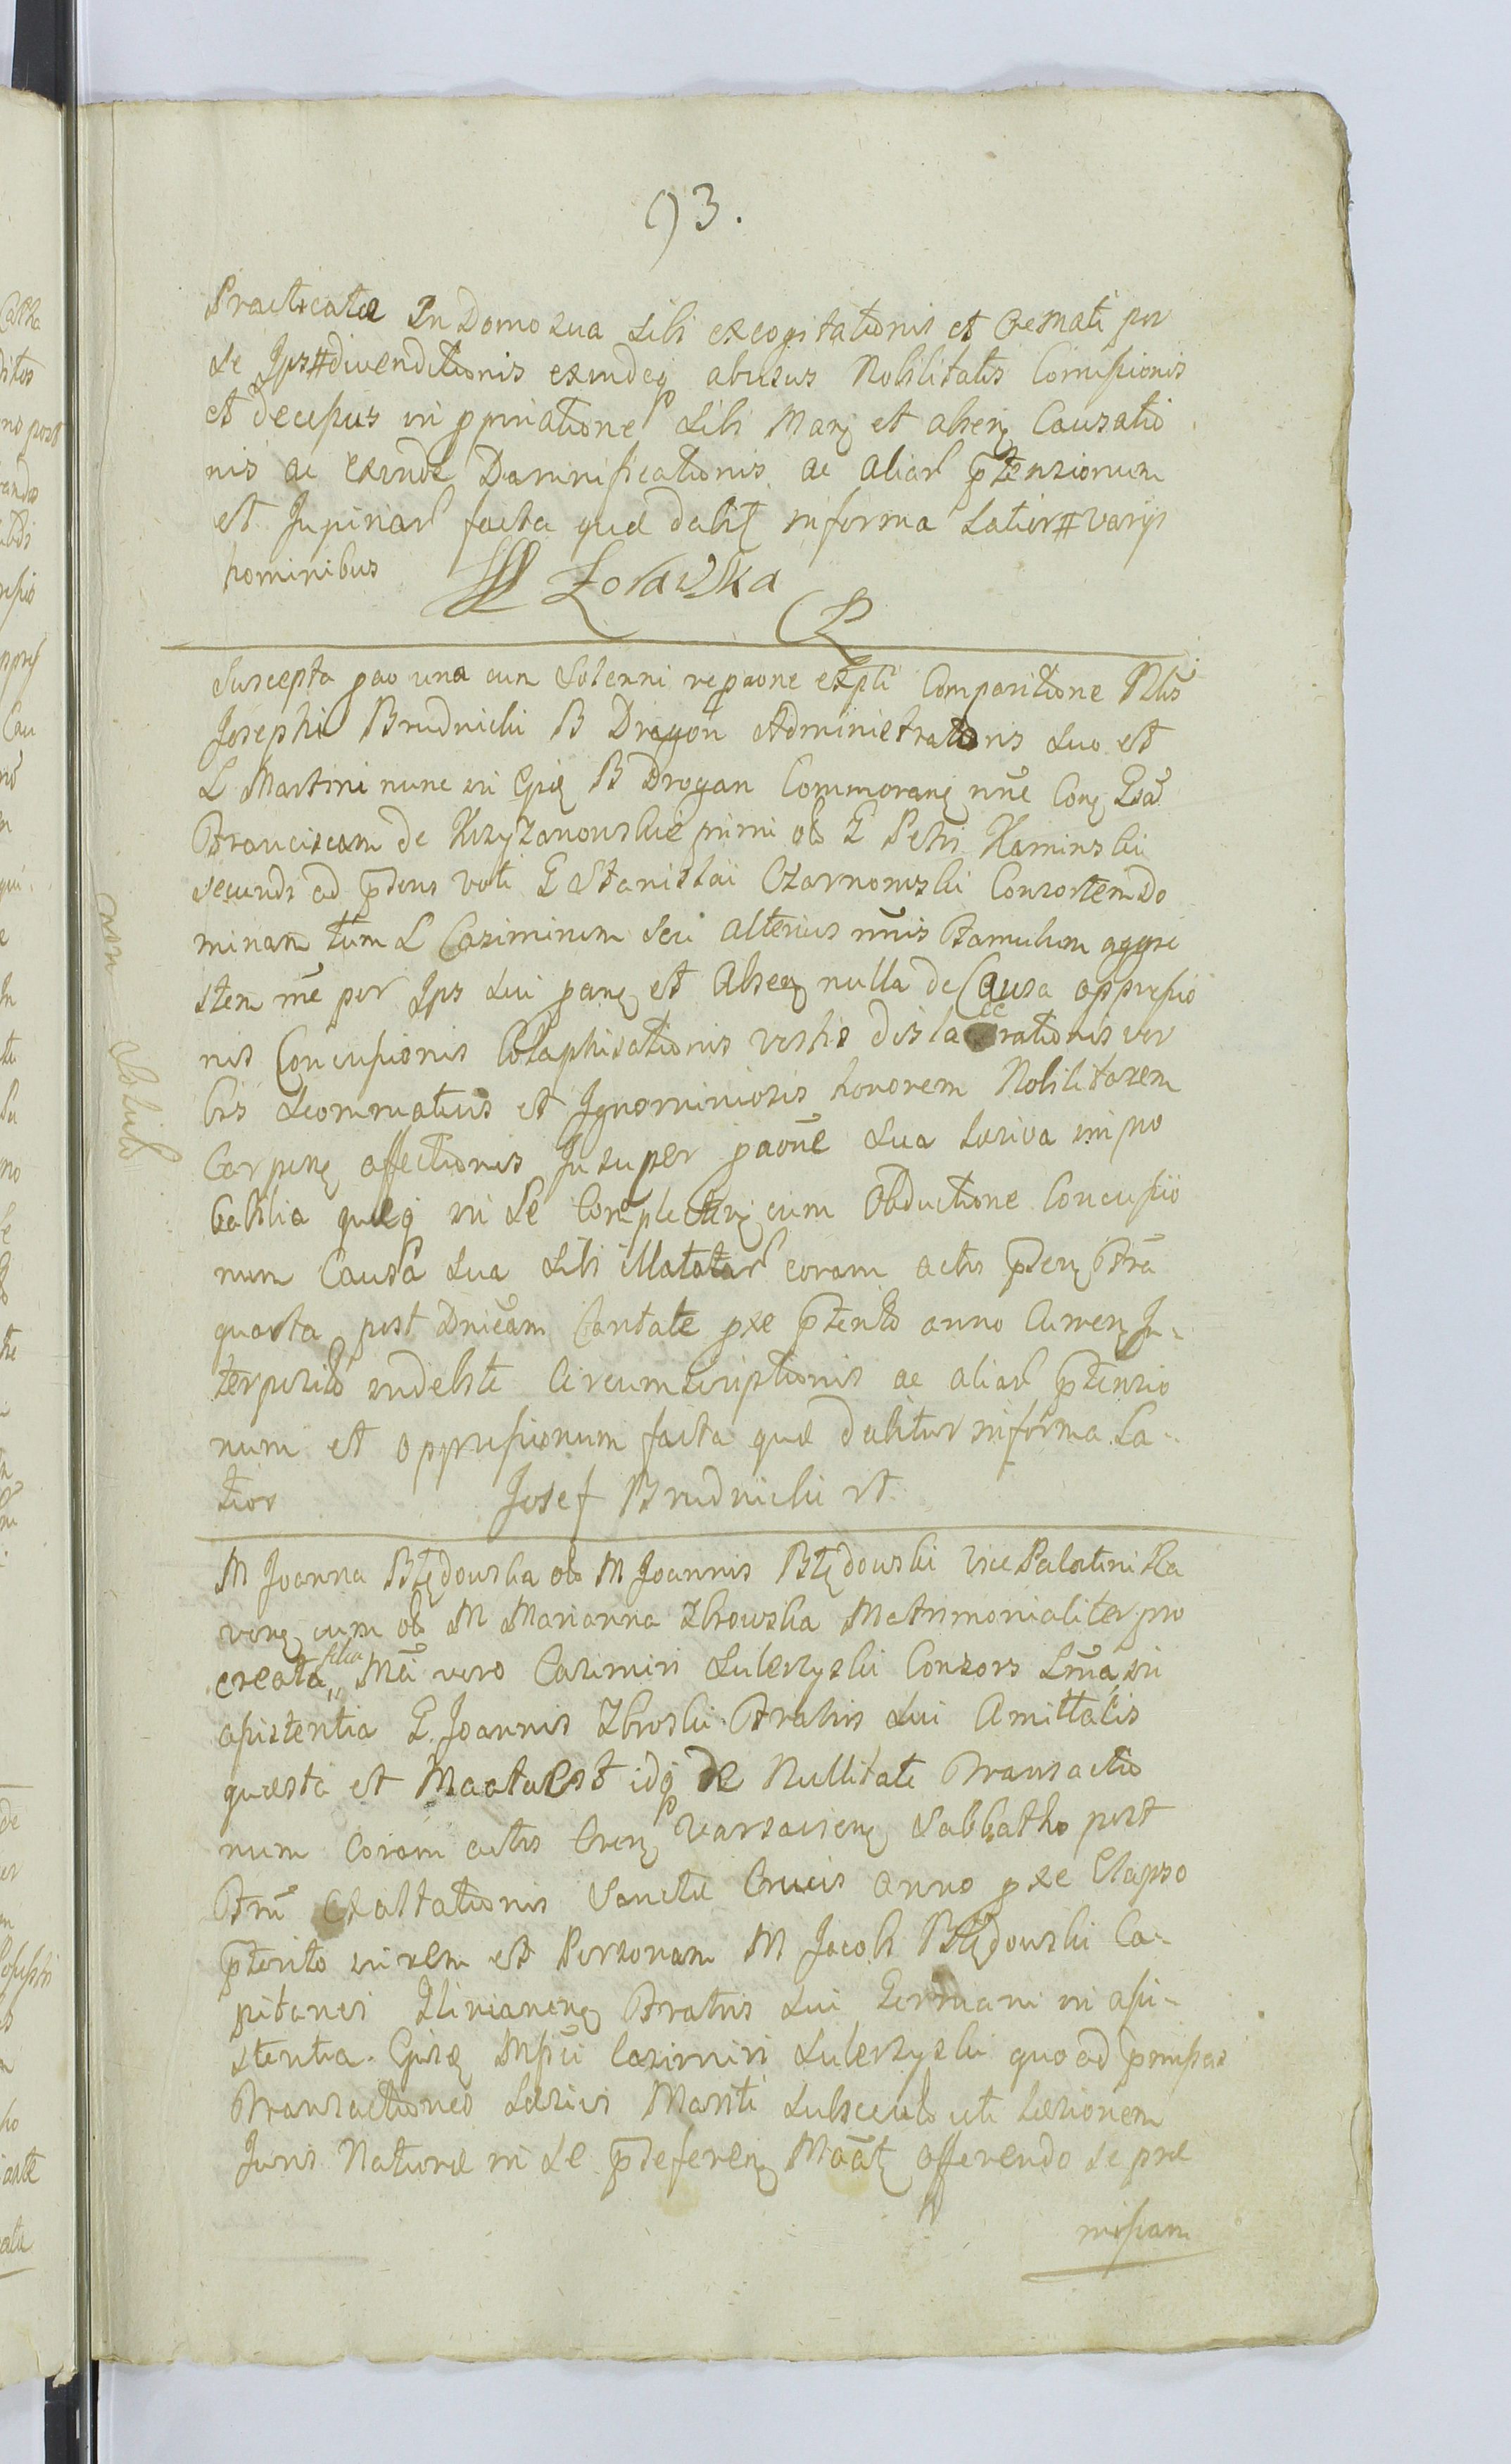 93.
Practicatæ In Domo sua Sibi excogitationis et Cremati per
se Ips# divenditionis exindeq abusus Nobilitatis Concussionis
et Decepus in ppinatione Sibi Manq et absenq Causatio
nis ac exinde Damnificationis ac aliar ptensionum
et Injuriar facta quæ dabit in forma Latiori# varys
hominibus Zoławska
Suscepta pao una cum Solenni repaone expti Comparitione Nblis
Josephi Brudnicki B Drogon Administratoris Suo et
L Martini nunc in Gpiq B Drogan Commoranq nne Conq Gsã
Franciscam de Krzyzanowskie primi olo G Petri Kaminski
secundi ad pdens voti G Stanislai Czarnomski Consortem Do
minam tum L Casimirum Seu alterius nnis Famulum aggre
stem me per Ips Sui panq et Absenq nulla de Causa oppressio
nis Concussionis Colaphisationis vestis dis lacerationis ver
bis Scommaticis et Ignominiosis honorem Nobilitarem
Carpenq affectionis Insuper paone Sua Læsiva impro
babilia quæq in Se Complectenq cum Obductione Concussio
num Causa Sua Sibi illatatar coram actis pdenq Fria
quarta post Dnicam Cantate pxe pterito anno Curren In-
terposito indebite Circumscriptionis ac aliar ptensio
num et oppressionum facta quæ dabitur in forma La-
tior Josef Brudnicki rt
M Joanna Błędowska olo M Joannis Błędowski Vice Palatini Ra
venq cum olo M Marianna Zbrowska Matrimonialiter pro
creata filia Mci vero Casimiri Suleyzyski Consors Lma in
assistentia G. Joannis Zbroski Fratris Sui Amittalis
quæsta et Maata est idq de Nullitate Transactio
num Coram actis Crenq Varsavienq Sabbatho post
Frm Exaltationis Sanctæ Crucis anno pxe Elapso
pterito in rem et Personam M Jacobi Błędowski Ca-
pitanei Zlivianenq Fratris Sui Germani in assi-
stentia Gpisq Mfici Casimiri Suleyzyski quo ad pmissas
Transactiones Læsivi Mariti Subsecuto uti Læsionem
Juris Naturæ in Se pdeferenq Maatq offerendo se præ
missam
non Solut